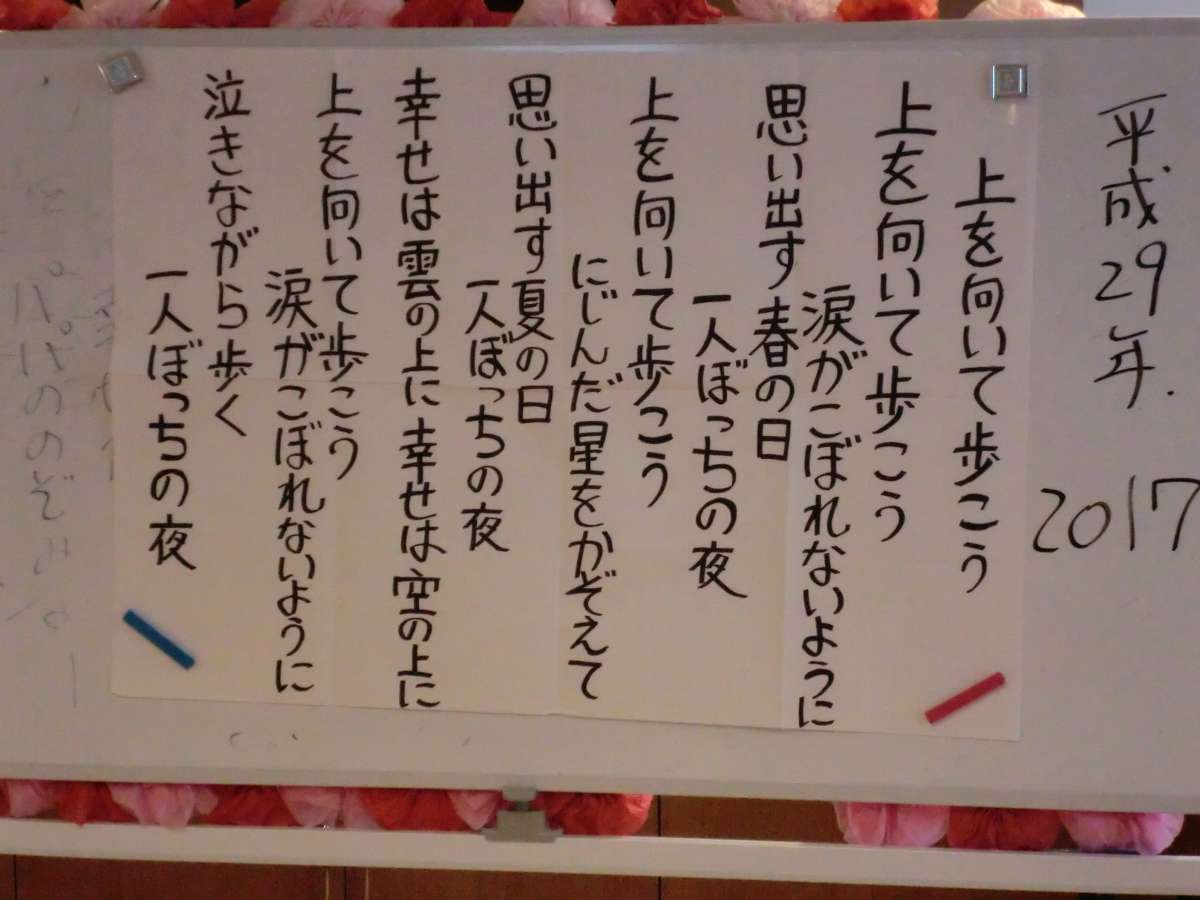 平成29年.
2017
上を向いて歩こう
上を向いて歩こう
涙がこぼれないように
思い出す春の日
一人ぼっちの夜
上を向いて歩こう
にじんだ星をかぞえて
思い出す夏の日
一人ぼっちの夜
幸せは雲の上に 幸せは空の上に
上を向いて歩こう
涙がこぼれないように
泣きながら歩く
一人ぼっちの夜